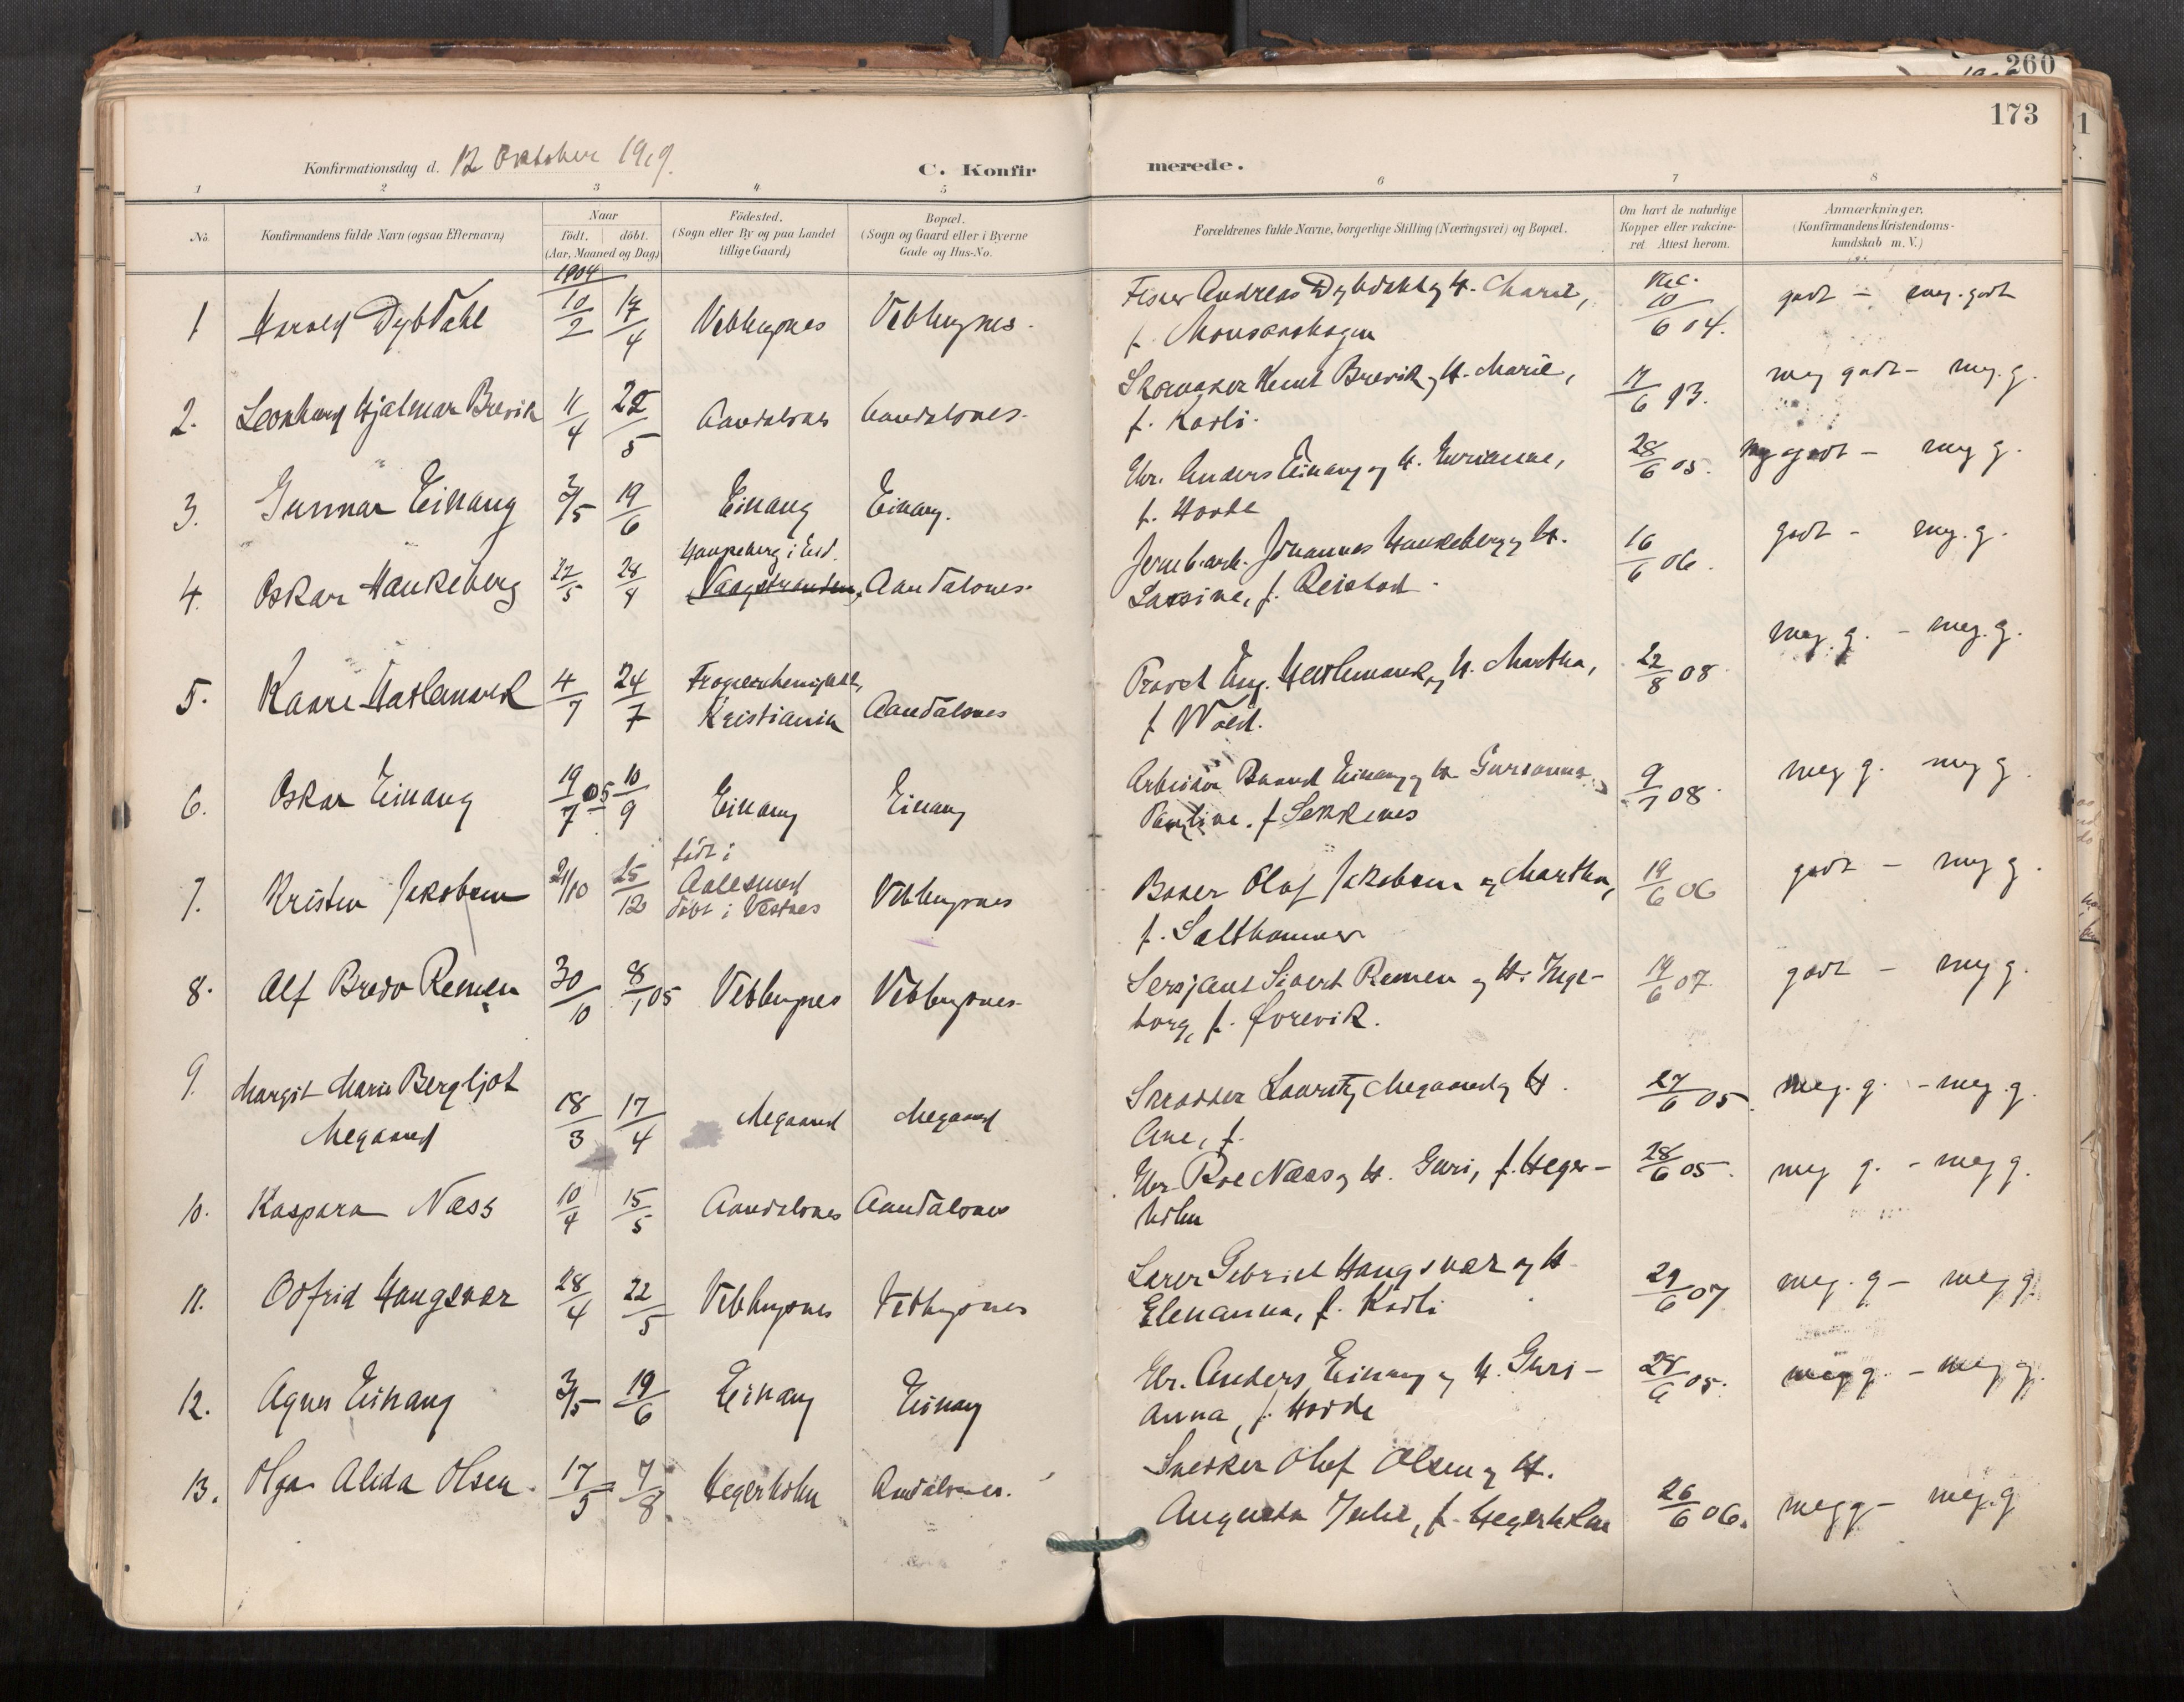 260
173
Konfirmationsdag d. 12 Oktober 1919.
C. Konfirmerede.
1 2 3 4 5 6 7 8
No.
Konfirmandens fulde Navn (ogsaa Efternavn)
Naar
födt. döbt.
(Aar, Maaned og Dag)
Födested.
(Sogn eller By og paa Landet
tillige Gaard)
Bopæl.
(Sogn og Gaard eller i Byerne
Gade og Hus-No.
Forældrenes fulde Navne, borgerlige Stilling (Næringsvei) og Bopæl.
Om havt de naturlige
Kopper eller vakcine-
ret. Attest herom.
Anmærkninger,
(Konfirmandens Kristendoms-
kundskab m. V.)
1904
1 Harald Dybdahl 10/2 17/4 Veblugsnes Veblugsnes. Fisker Andreas Dybdahl og H. Marie, vac. 10/6 04. godt - meg. godt
f. Monsenshagen
2. Leonhard Hjalmar Brevik 11/4 22/5 Aandalsnes Aandalsnes. Skomaker Knut Brevik og H. Marie, 17/6 13. meg godt - meg. g.
f. Korli.
3. Gunnar Einang 3/5 19/6 Einang Einang. Gbr. Anders Einang og H. Gurianna, 28/6 05. meg godt - meg g.
f. Hovde
4. Oskar Haukeberg 22/5 28/8 Haukeberg i Eid. Vaagstranden, Aandalsnes. Jernb.arb. Johannes Haukeberg og H. 16/6 06. godt - meg. g.
Lassine, f. Reistad.
5. Kaare Haslemark 4/7 24/7 Frogner menighet, Kristiania Aandalsnes Provst Aug. Haslemark og H. Martha, 22/8 08 meg. g. - meg. g.
f. Wold.
6. Oskar Einang 19/7 05 10/9 Einang Einang Arbeider Baard Einang og H. Gurianna 9/7 08. meg g. meg g.
Pauline. f. Sekkenes
7. Kristen Jakobsen 21/10 25/12 født i Aalesund døbt i Vestnes Veblugsnes Baker Olaf Jakobsen og Martha, 19/6 06 godt - meg g.
f. Salthammer
8. Alf Bredo Remen 30/10 8/1 05 Veblugsnes Veblugsnes. Sersjant Sivert Remen og H. Inge- 19/6 07. godt - meg g.
borg, f.Ørevik.
9. Margit Marie Bergljot
Megaard 18/3 17/4 Megaard Megaard Skrædder Lauritz Megaard og H. 27/6 05. meg. g. - meg. g.
Ane, f.
10. Kaspara Næss 10/4 15/5 Aandalsnes Aandalsnes Gbr. Roe Næss og H. Guri, f. Heger- 28/6 05. meg g. - meg g.
holm
11. Oddfrid Haugsvær 28/4 22/5 Veblugsnes Veblugsnes Lærer Gabriel Haugsvær og H. 29/6 07 meg. g - meg g.
Elenanna, f. Korli
12. Agnes Einang 3/5 19/6 Einang Einang Gbr. Anders Einang og H. Guri- 28/6 05. meg g. - meg g.
anna, f. Hovde
13. Olga Alida Olsen. 17/5 7/8 Hegerholm Aandalsnes. Snekker Olof Olsen og H. 26/6 06. meg g - meg. g
Augusta Julie, f. Hegerholm